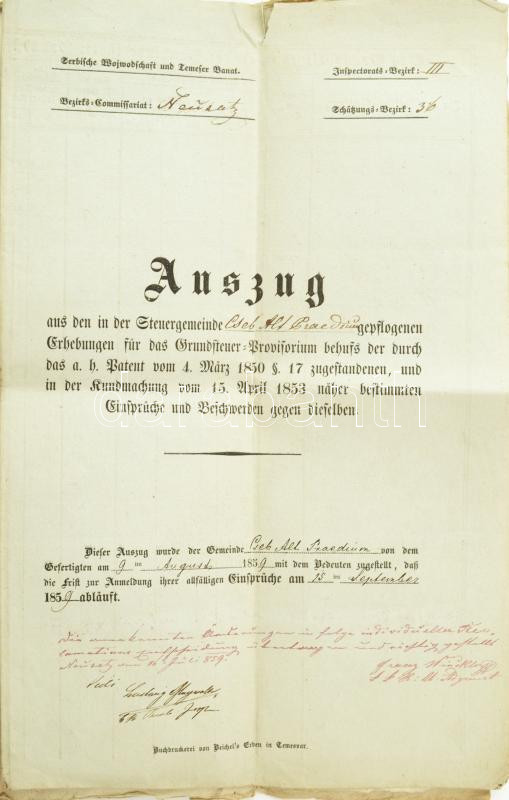 Serbische Wojwodschaft und Temeser Banat.
Inspectorats-Bezirk: III
Bezirks-Commissariat: Neusatz
Schätzungs-Bezirk: 36
Auszug
aus den in der Steuergemeinde Cseb Alt Praedium gepflogenen
Erhebungen für das Grundsteuer-Provisorium behufs der durch
das a. h. Patent vom 4. März 1850 §. 17 zugestandenen, und
in der Kundmachung vom 15. April 1853 näher bestimmten
Einsprüche und Beschwerden gegen dieselben.
darabanth
Dieser Auszug wurde der Gemeinde Cseb Alt Praedium von dem
Gefertigten am 9 ten August 1859 mit dem Bedeuten zugestellt, daß
die Frist zur Anmeldung ihrer allfälligen Einsprüche am 15 ten September
1859 abläuft.
Die anerkannten Änderungen in folge individueller Rec-
lamations entscheidung übertragen und richtig gestellt
Neusatz am Juli 859.
Franz
Buchdruckerei von Beichel's Erben in Temesvar.